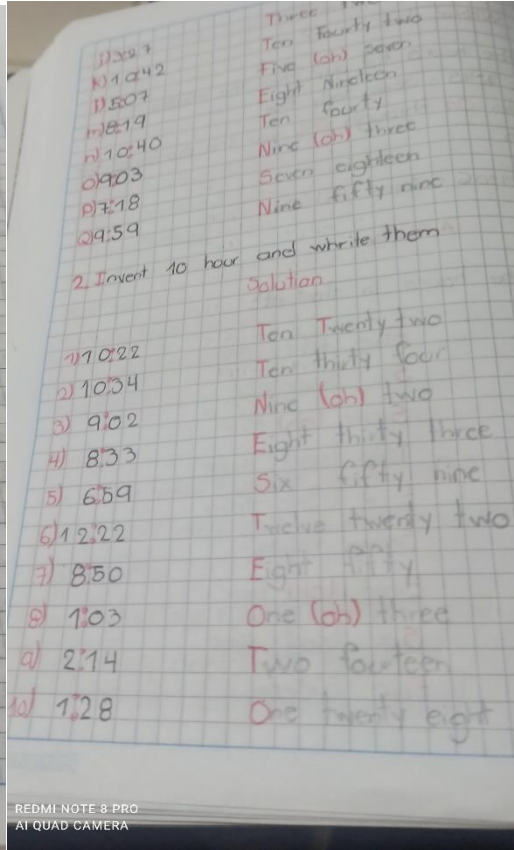 Three
K) 10:42 Ten Fourty two
l) 5:07 Five (oh) seven
m) 8:19 Eight Nineteen
n) 10:40 Ten fourty
O) 9:03 Nine (oh) three
P) 7:18 Seven eighteen
Q) 9:59 Nine fifty nine
2. Invent 10 hour and whrite them
Solution
1) 10:22 Ten Twenty two
2) 10:34 Ten thirty four
3) 9:02 Nine (oh) two
4) 8:33 Eight thirty three
5) 6:59 Six fifty nine
6) 12:22 Twelve twenty two
7) 8:50 Eight fifty
8) 1:03 One (oh) three
9) 2:14 Two fourteen
10) 1:28 One twenty eight
REDMI NOTE 8 PRO
AI QUAD CAMERA